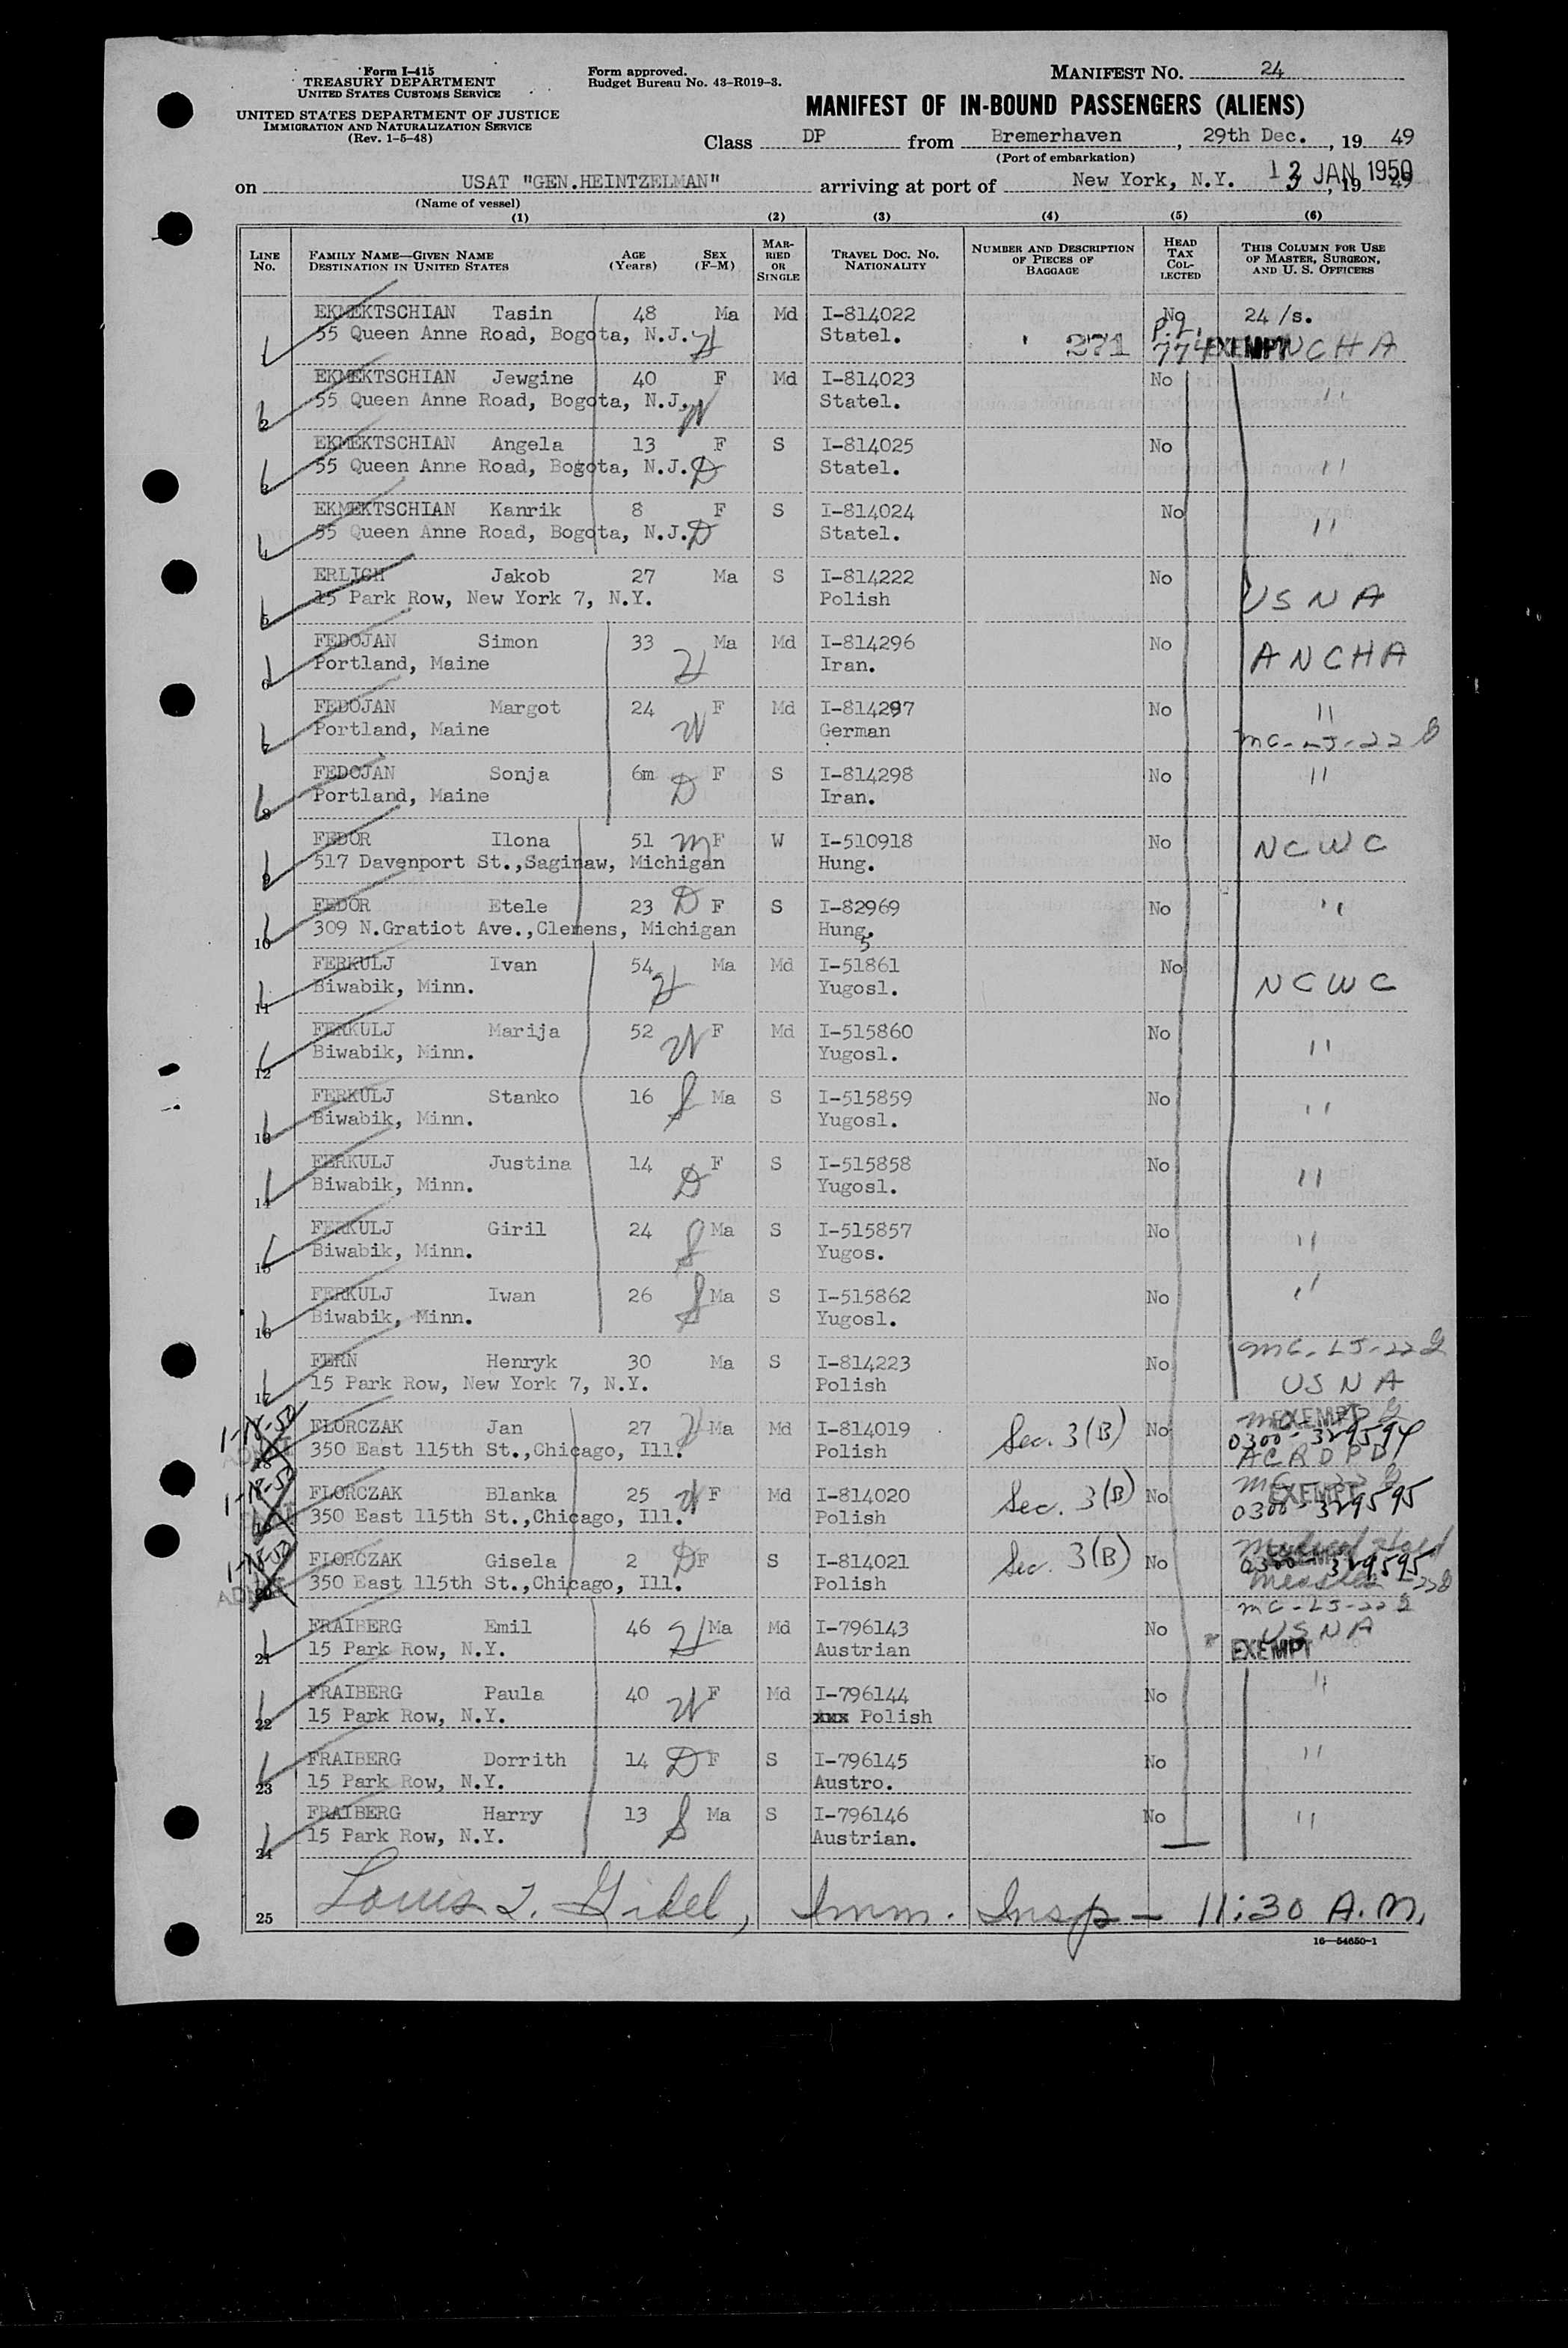 Form I-415
TREASURY DEPARTMENT
UNITED STATES CUSTOMS SERVICE
UNITED STATES DEPARTMENT OF JUSTICE
IMMIGRATION AND NATURALIZATION SERVICE
(Rev. 1-5-48)
Form approved.
Budget Bureau No. 43-R019-3.
MANIFEST NO. 24
MANIFEST OF IN-BOUND PASSENGERS (ALIENS)
Class DP from Bremerhaven, 29th Dec., 19 49
(Port of embarkation)
on USAT "GEN.HEINTZELMAN" arriving at port of New York, N.Y. JAN 1950, 19
(Name of vessel)
(1) (2) (3) (4) (5) (6)
LINE No. FAMILY NAME—GIVEN NAME DESTINATION IN UNITED STATES AGE (Years) SEX (F-M) MARRIED OR SINGLE TRAVEL DOC. NO. NATIONALITY NUMBER AND DESCRIPTION OF PIECES OF BAGGAGE HEAD TAX COLLECTED THIS COLUMN FOR USE OF MASTER, SURGEON, AND U. S. OFFICERS
EKMEKTSCHIAN Tasin 48 Ma Md I-814022 No 24/s.
55 Queen Anne Road, Bogota, N.J. H Statel. 271 P.L. 774 EXEMPT ANCHA
2 EKMEKTSCHIAN Jewgine 40 F Md I-814023 No "
55 Queen Anne Road, Bogota, N.J. W Statel.
3 EKMEKTSCHIAN Angela 13 F S I-814025 No
55 Queen Anne Road, Bogota, N.J. D Statel. "
4 EKMEKTSCHIAN Kanrik 8 F S I-814024 No
55 Queen Anne Road, Bogota, N.J. D Statel. "
5 ERLICH Jakob 27 Ma S I-814222 No
15 Park Row, New York 7, N.Y. Polish USNA
6 FEDOJAN Simon 33 Ma Md I-814296 No
Portland, Maine H Iran. ANCHA
7 FEDOJAN Margot 24 F Md I-814297 No "
Portland, Maine W German MC-LJ-22
8 FEDOJAN Sonja 6m F S I-814298 No "
Portland, Maine D Iran.
9 FEDOR Ilona 51 M F W I-510918 No NCWC
517 Davenport St.,Saginaw, Michigan Hung.
10 FEDOR Etele 23 D F S I-82969 No "
309 N.Gratiot Ave.,Clemens, Michigan Hung.
11 FERKULJ Ivan 54 Ma Md I-551861 No
Biwabik, Minn. H Yugosl. NCWC
12 FERKULJ Marija 52 W F Md I-515860 No
Biwabik, Minn. Yugosl. "
13 FERKULJ Stanko 16 S Ma S I-515859 No "
Biwabik, Minn. Yugosl.
14 FERKULJ Justina 14 F S I-515858 No
Biwabik, Minn. D Yugosl. "
15 FERKULJ Giril 24 S Ma S I-515857 No
Biwabik, Minn. Yugos. "
16 FERKULJ Iwan 26 S Ma S I-515862 No "
Biwabik, Minn. Yugosl.
17 FERN Henryk 30 Ma S I-814223 No MC-LJ-22
15 Park Row, New York 7, N.Y. Polish USNA
1-18-50 FLORCZAK Jan 27 H Ma Md I-814019 Sec. 3(B) No EXEMPT 0300-329594
ADMIT 18 350 East 115th St.,Chicago, Ill. Polish ACRDPD
1-18-50 FLORCZAK Blanka 25 W F Md I-814020 Sec. 3(B) No EXEMPT
350 East 115th St.,Chicago, Ill. Polish 0300-329595
1-18-50 FLORCZAK Gisela 2 D F S I-814021 Sec. 3(B) No Medical Hold 0300-329595
ADMIT 350 East 115th St.,Chicago, Ill. Polish Measles
21 FRAIBERG Emil 46 H Ma Md I-796143 No MC-LJ-22 USNA
15 Park Row, N.Y. Austrian EXEMPT
22 FRAIBERG Paula 40 W F Md I-796144 No "
15 Park Row, N.Y. xxx Polish
23 FRAIBERG Dorrith 14 D F S I-796145 No "
15 Park Row, N.Y. Austro.
24 FRAIBERG Harry 13 S Ma S I-796146 No "
15 Park Row, N.Y. Austrian.
25 Louis J. Gidel, Imm. Insp — 11:30 A.M.
16—54650-1